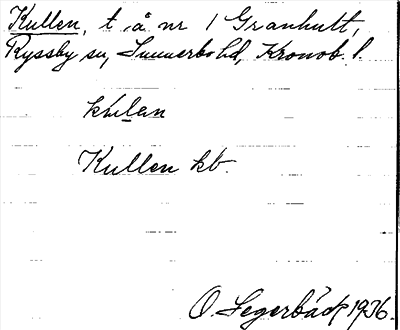 Kullen, t. å nr 1 Granhult,
Ryssby sn, Sunnerbo hd, Kronob. l.
kulen
Kullen kb.
O. Segerbäck 1936.